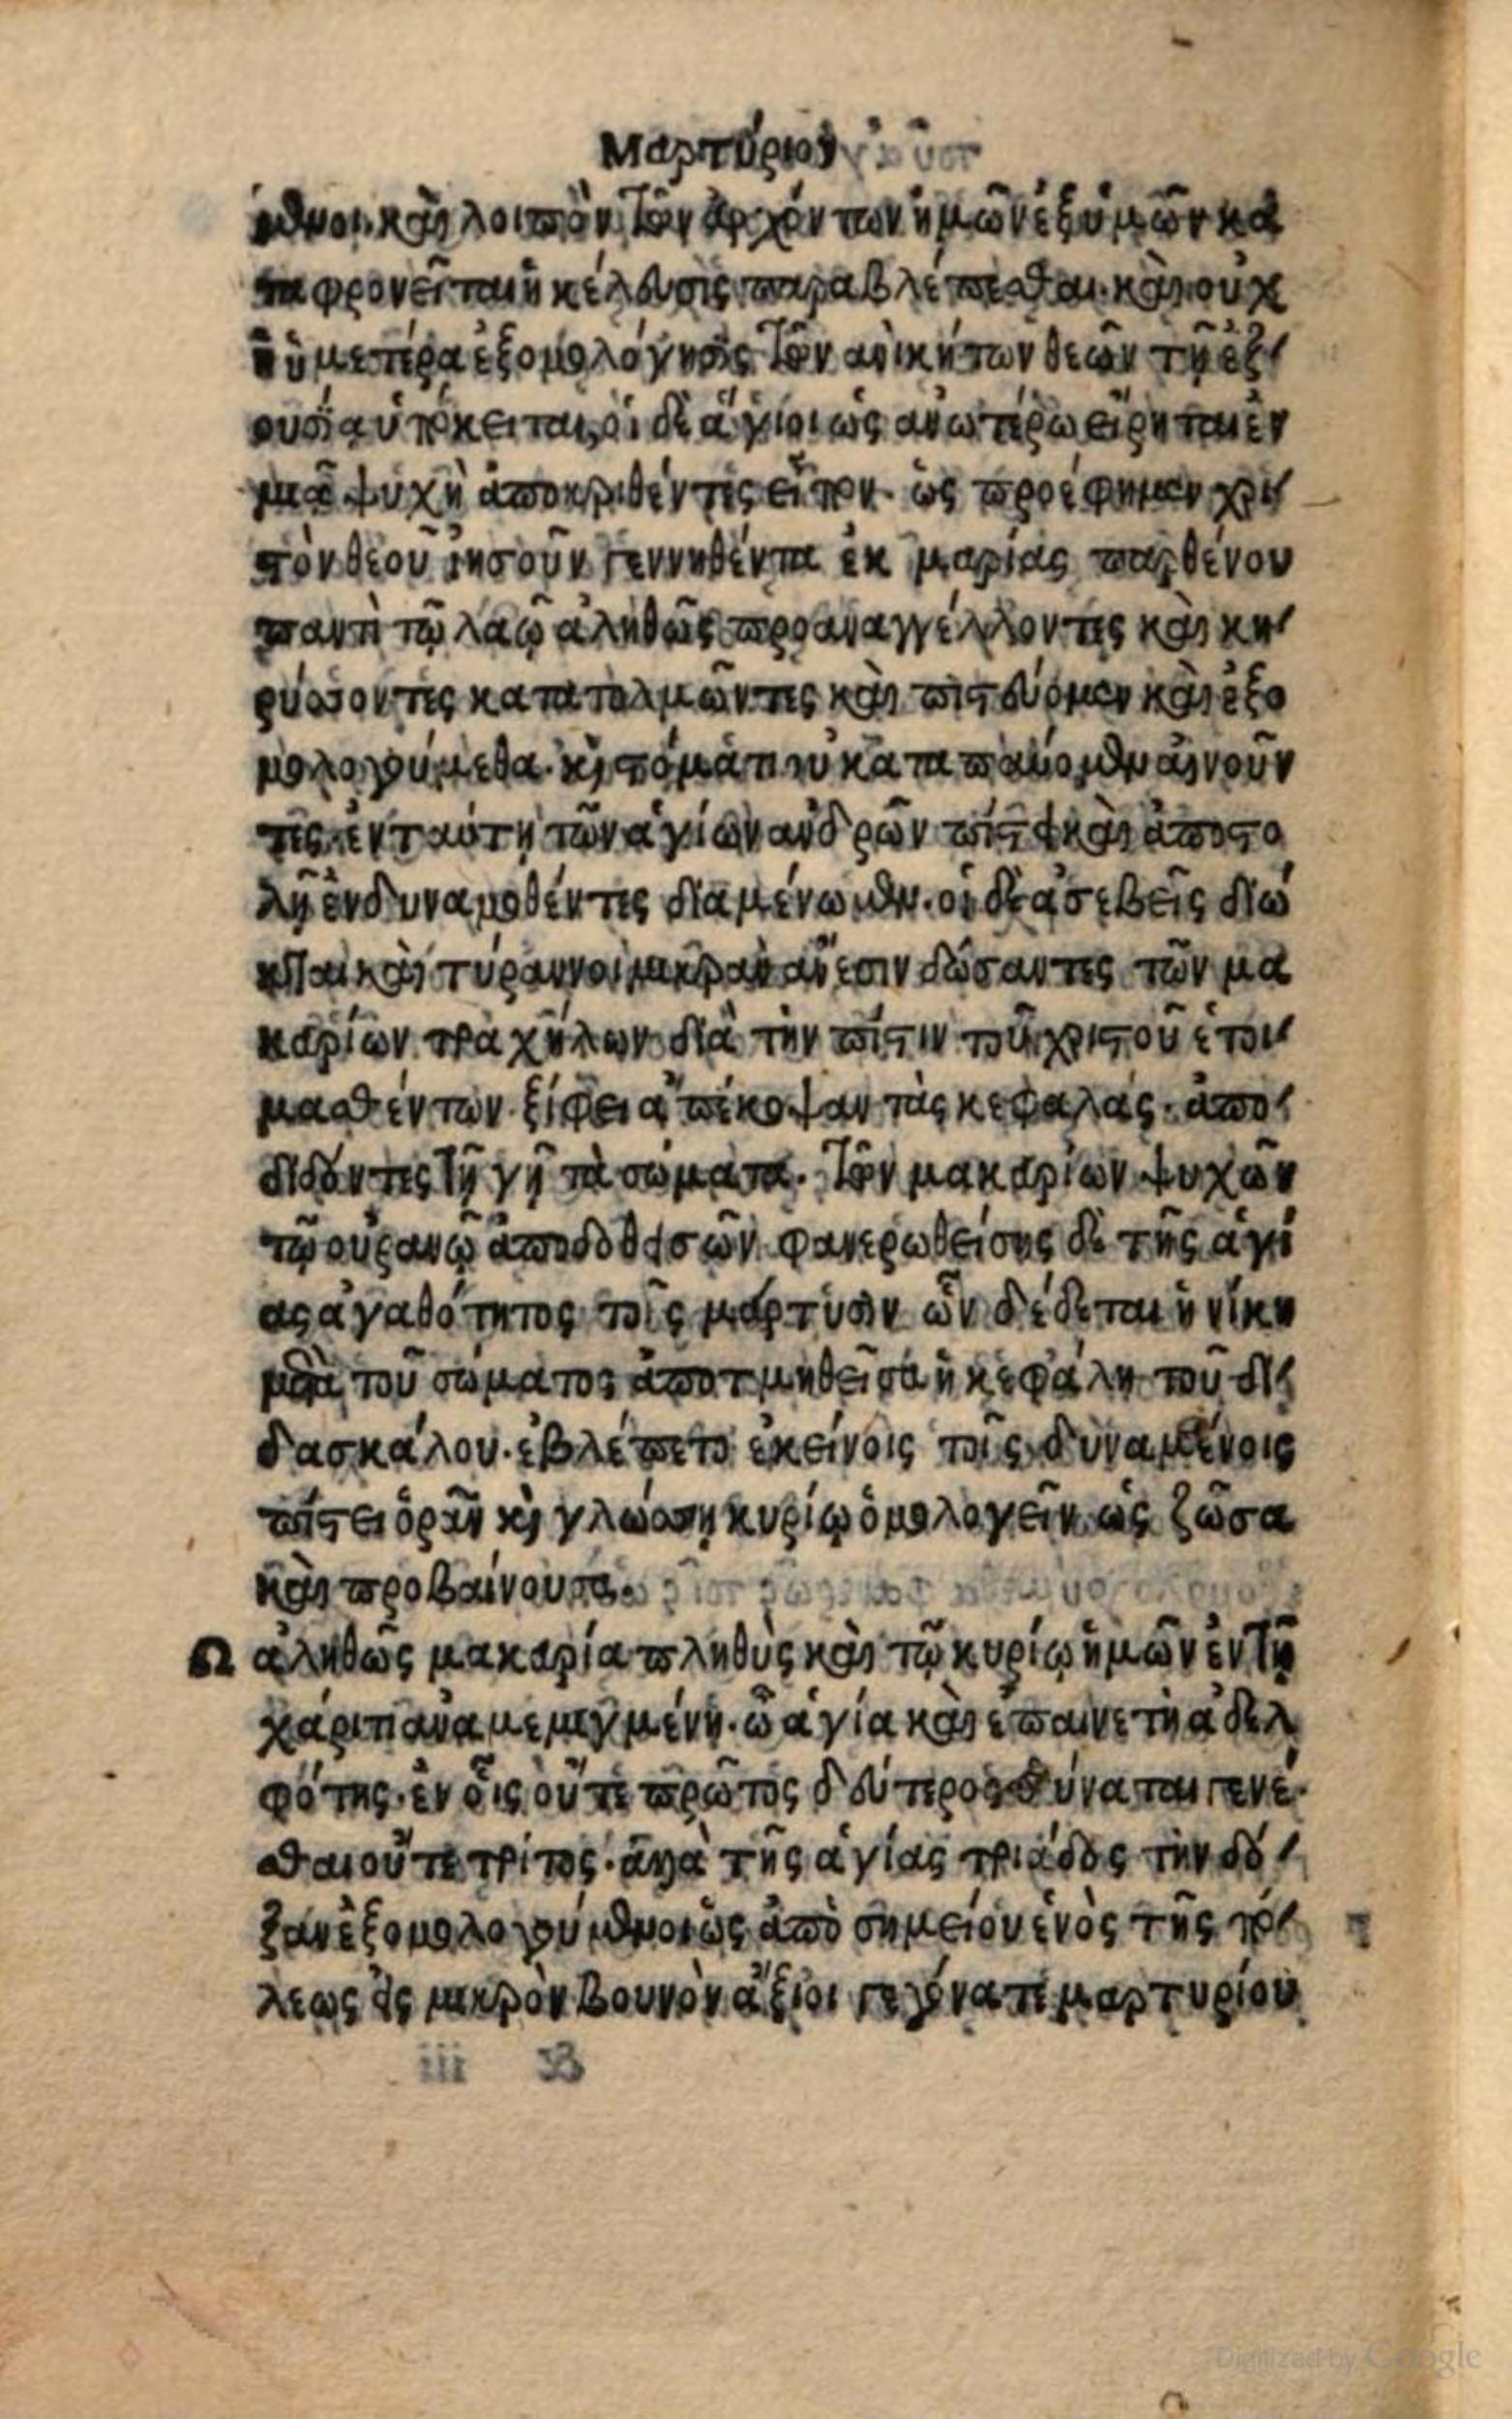 Μαρτύριον
μθμοι. καὶ λοιπὸν τῶν ἀρχόντων ἡμῶν ἐξ ὑμῶν κα
ταφρονεῖται ἡ κέλευσις παραβλέπεσθαι. καὶ οὐχ
ἡ ὑμετέρα ἐξομολόγησις τῶν ἀνικήτων θεῶν τῇ ἐξ
ουσίᾳ ὑπόκειται, οἱ δὲ ἅγιοι ὡς ἀνωτέρω εἴρηται ἐν
μιᾷ ψυχῇ ἀποκριθέντες εἶπον. ὡς προέφημεν χρι
στὸν θεοῦ ἰησοῦν γεννηθέντα ἐκ μαρίας παρθένου
παντὶ τῷ λαῷ ἀληθῶς προαναγγέλλοντες καὶ κη
ρύσσοντες κατατολμῶντες καὶ πιστεύομεν καὶ ἐξο
μολογούμεθα. καὶ στόματι οὐ καταπαυόμεθα αἰνοῦν
τες. ἐν ταύτῃ τῶν ἁγίων ἀνδρῶν πίστει καὶ ἀποστο
λῇ ἐνδυναμοθέντες διαμένωμεν. οἱ δὲ ἀσεβεῖς διώ
κται καὶ τύραννοι μικρὰν ἄνεσιν δώσαντες τῶν μα
καρίων τραχήλων διὰ τὴν πίστιν τοῦ χριστοῦ ἑτοι
μασθέντων ξίφει ἀπέκοψαν τὰς κεφαλάς. ἀπο
διδόντες τῇ γῇ τὰ σώματα. τῶν μακαρίων ψυχῶν
τῷ οὐρανῷ ἀποδοθεισῶν φανερωθείσης δὲ τῆς ἁγί
ας ἀγαθότητος τοῖς μάρτυσιν ὧν δέδεται ἡ νίκη
μετὰ τοῦ σώματος ἀποτμηθεῖσα ἡ κεφάλη τοῦ δι
δασκάλου. ἐβλέπετο ἐκείνοις τοῖς δυναμένοις
πίστει ὁρᾶν καὶ γλώσσῃ κυρίῳ ὁμολογεῖν ὡς ζῶσα
καὶ προβαίνουσα.
Ω ἀληθῶς μακαρία πληθὺς καὶ τῷ κυρίῳ ἡμῶν ἐν τῇ
χάριτι ἀναμεμιγμένη. ὦ ἁγία καὶ ἐπαινετὴ ἀδελ
φότης. ἐν οἷς οὔτε πρῶτος δεύτερος δύναται γενέ
σθαι οὔτε τρίτος. ἀλλὰ τῆς ἁγίας τριάδος τὴν δό
ξαν ἐξομολογούμενοι ὡς ἀπὸ σημείου ἑνὸς τῆς πό
λεως εἰς μικρὸν βουνὸν ἄξιοι γεγόνατε μαρτυρίου
Digitized by Google